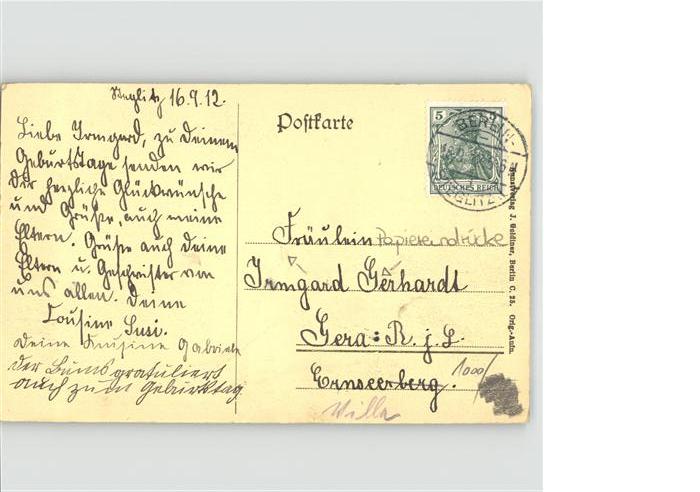 Steglitz 16.9.12.
Liebe Irmgard, zu Deinem
Geburtstage senden wir
Dir herzliche Glückwünsche
und Grüße, auch meine
Eltern. Grüße auch Deine
Eltern u. Geschwister von
uns allen. Deine
Cousine Susi.
Deine Kusine Gabriele
der Bums gratuliert
auch zum Geburtstag
Postkarte
5
DEUTSCHES REICH
BERLIN-
STEGLITZ
Fräulein Papiereindrücke
Irmgard Gerhardt
Gera-R. j. L.
Ernseerberg.
Villa
1000/
Kunstverlag J. Goldiner, Berlin C. 25. Orig.-Aufn.